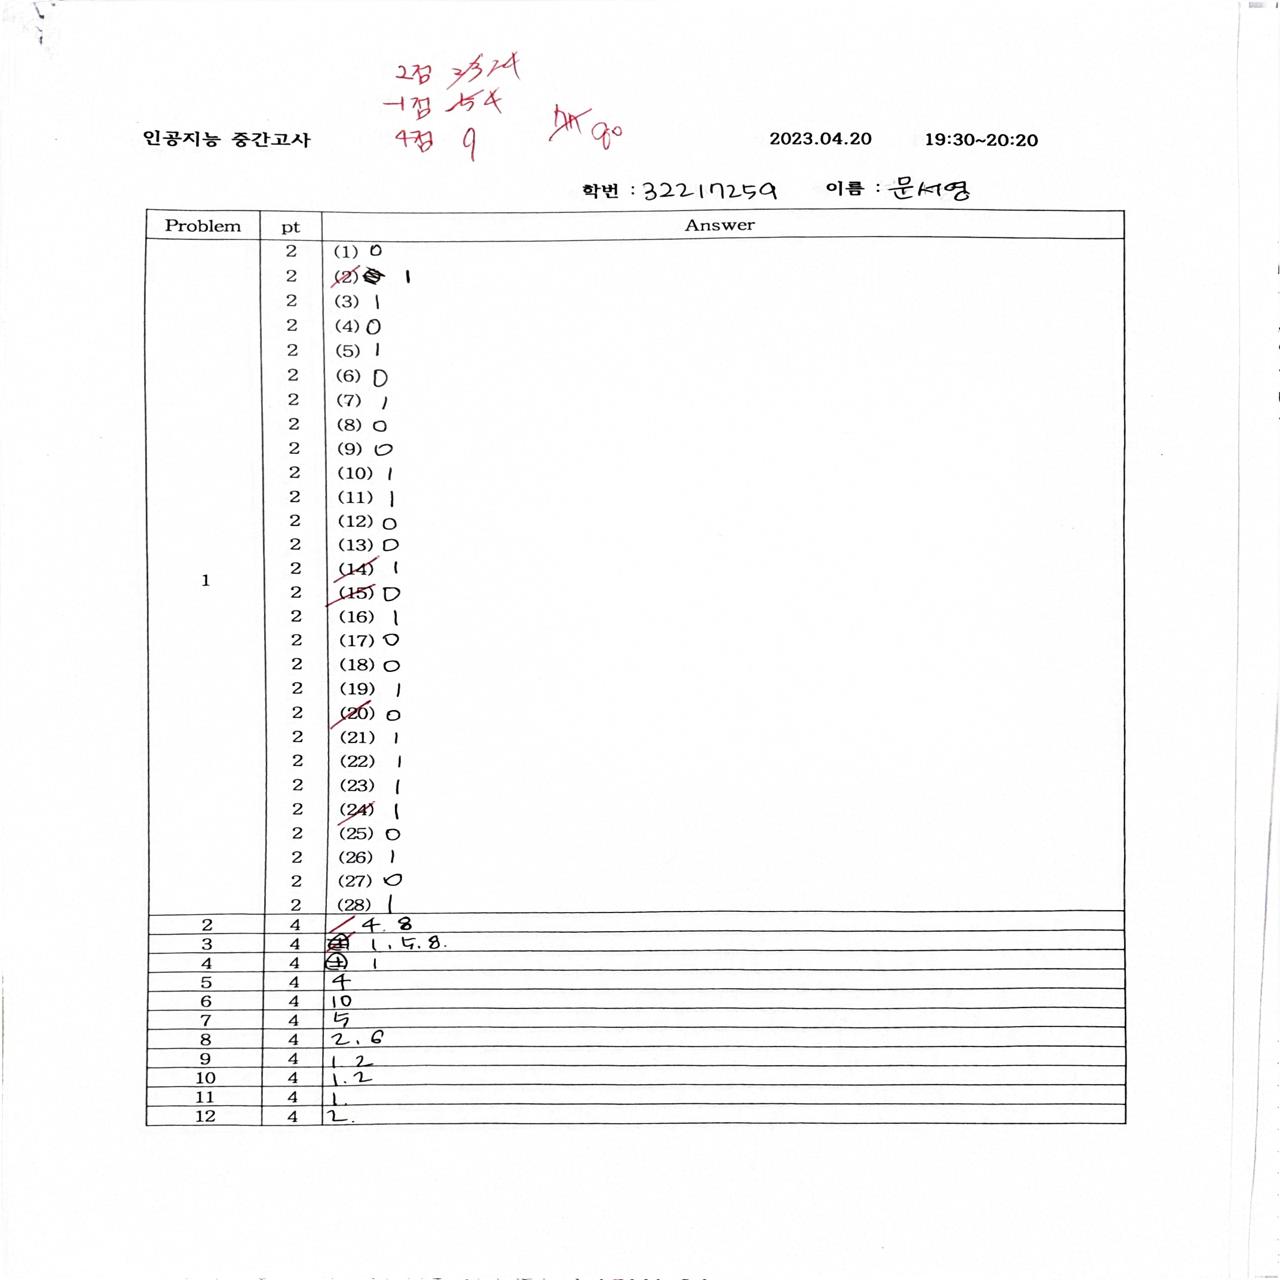 2점 24
-1점 4
4점 9
90
인공지능 중간고사 2023.04.20 19:30~20:20
학번 : 32217259 이름 : 문서영
Problem pt Answer
2 (1) 0
2 (2) 1
2 (3) 1
2 (4) 0
2 (5) 1
2 (6) 0
2 (7) 1
2 (8) 0
2 (9) 0
2 (10) 1
2 (11) 1
2 (12) 0
2 (13) 0
2 (14) 1
1
2 (15) 0
2 (16) 1
2 (17) 0
2 (18) 0
2 (19) 1
2 (20) 0
2 (21) 1
2 (22) 1
2 (23) 1
2 (24) 1
2 (25) 0
2 (26) 1
2 (27) 0
2 (28) 1
2 4 4. 8
3 4 1. 5. 8.
4 4 1
5 4 4
6 4 10
7 4 5
8 4 2. 6
9 4 1 2
10 4 1. 2
11 4 1.
12 4 2.